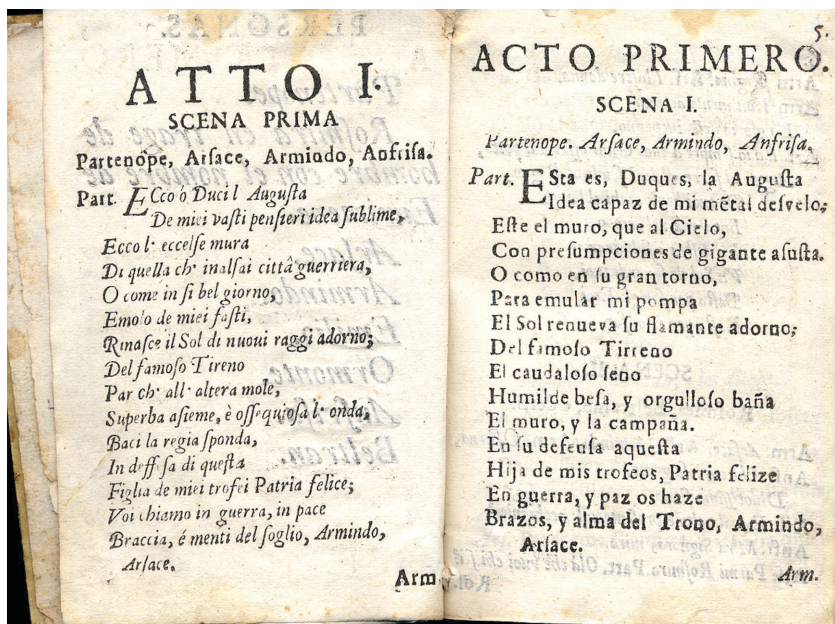 ATTO I.
SCENA PRIMA
Partenope, Arſace, Armindo, Anfriſa.
Part. ECco ò Duci l' Auguſta
De miei vaſti penſieri idea ſublime,
Ecco l' eccelſe mura
Di quella ch' inalſai città guerriera,
O come in ſi bel giorno,
Emolo de miei faſti,
Rinaſce il Sol di nuoui raggi adorno;
Del famoſo Tireno
Par ch' all' altera mole,
Superba aſieme, è oſſequioſa l' onda,
Baci la regia ſponda,
In deffeſa di queſta
Figlia de miei trofei Patria felice;
Voi chiamo in guerra, in pace
Braccia, é menti del ſoglio, Armindo,
Arſace.
Arm
5.
ACTO PRIMERO.
SCENA I.
Partenope. Arſace, Armindo, Anfriſa.
Part. ESta es, Duques, la Auguſta
Idea capaz de mi mẽtal deſvelo;
Eſte el muro, que al Cielo,
Con preſumpciones de gigante aſuſta.
O como en ſu gran torno,
Para emular mi pompa
El Sol renueva ſu flamante adorno;
Del famoſo Tirreno
El caudaloſo ſeno
Humilde beſa, y orgulloſo baña
El muro, y la campaña.
En ſu defenſa aqueſta
Hija de mis trofeos, Patria felize
En guerra, y paz os haze
Brazos, y alma del Trono, Armindo,
Arſace.
Arm.